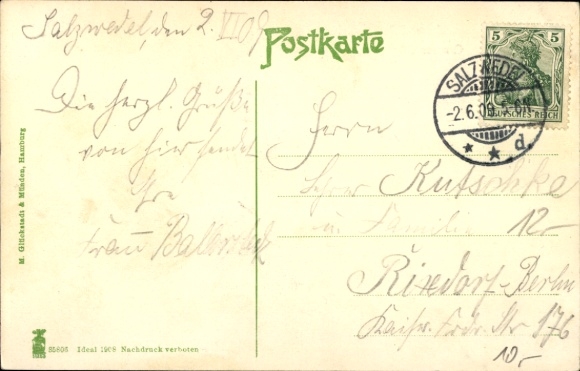 Salzwedel, den 2. VI 09
Postkarte
Die herzl. Grüße
von hier sendet
Ihre
Frau
5 5
DEUTSCHES REICH
SALZWEDEL
-2.6.09.
* * d.
Herrn
Kutschke
u. Familie
12-
Rixdorf-Berlin
Kaiser Frdr. Str 176
10-
M. Glückstadt & Münden, Hamburg
85898 Ideal 1908 Nachdruck verboten